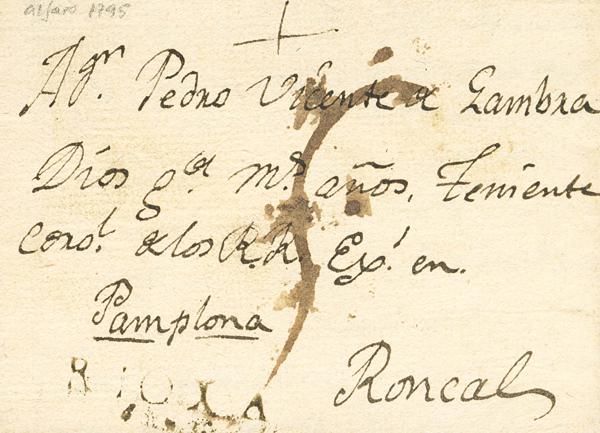 alfaro 1795
A Dn. Pedro Vicente de Gambra
Dios gde. ms. años, Teniente
Corol. de los R.R. Exs. en
Pamplona
Roncal
RIOXA